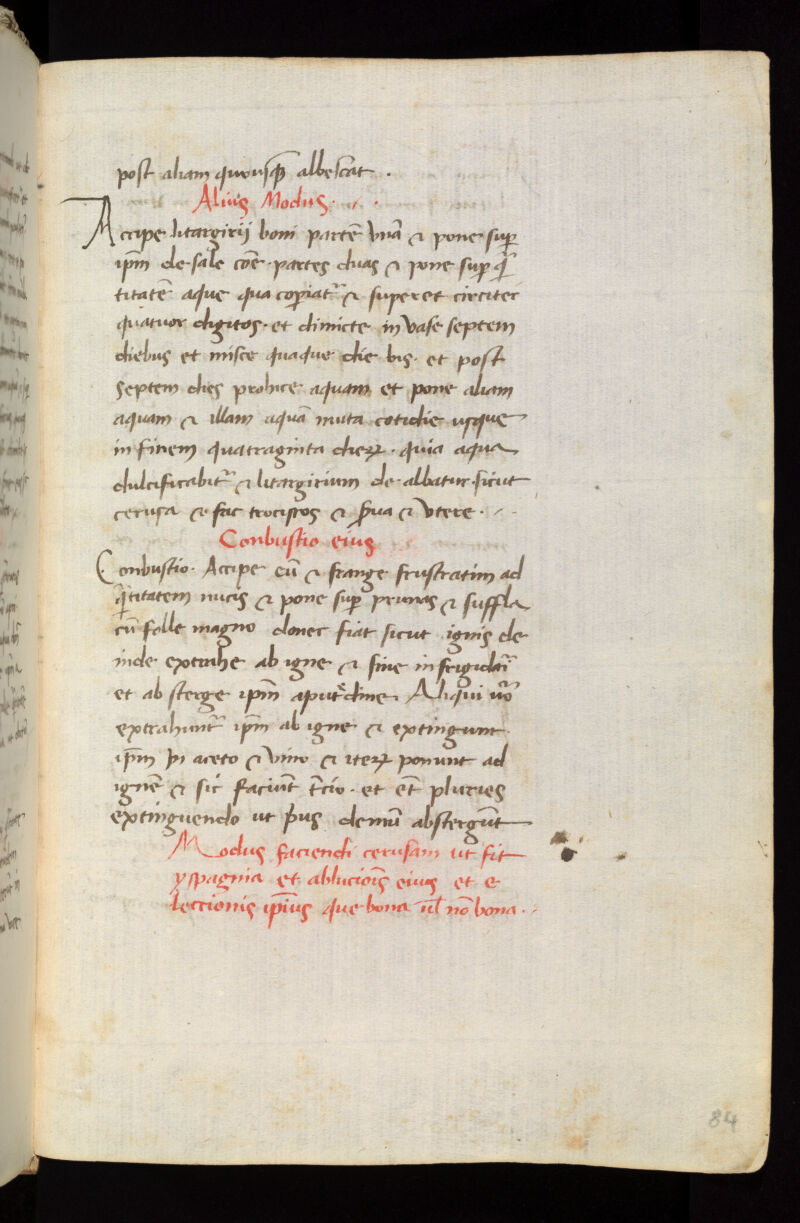 post aliam quousqꝫ albescat .
Alius Modus . . .
Accipe litargirij boni partē vnā & pone suꝑ
ip̄m de sale cōe . partes duas & pone suꝑ qͣ̄
titatē aque qua coꝑiatᷣ & superet circiter
quatuor digitos . et dimicte in vase septem
diebus et misce quaque die bis . et post
septem dies prohice aquam et pone aliam
aquam & illam aquā muta cotidie usque
in finem quatraginta dieꝝ . quia aqua
dulcificabitᷣ & litargirium de albatur . sicut
cerusa & fac trociscos & ꝑua & vtere . . .
Conbustio eius
Conbustio . Accipe eū & frange frustratim ad
qͣ̄titatem nucis & pone suꝑ prunas & suffla
cū folle magno donec fiat sicut ignis de
inde extrahe ab igne & sine infrigidaᷣi
et ab sterge ip̄m aputͤdine . Aliqui u͛o
extrahuntᷣ ip̄m ab igne & extingunt
ip̄m in aceto & vino & iteꝝ ponunt ad
ignē & sic faciūt t̄cio . et et̄ pluries
extinguendo ut pͥus demū abstergūt
Modus faciendi cerusam ut fit
yspagnia et ablucioīs eius et e
leccionis ip̄ius que bona ul̄ nō bona . .
84